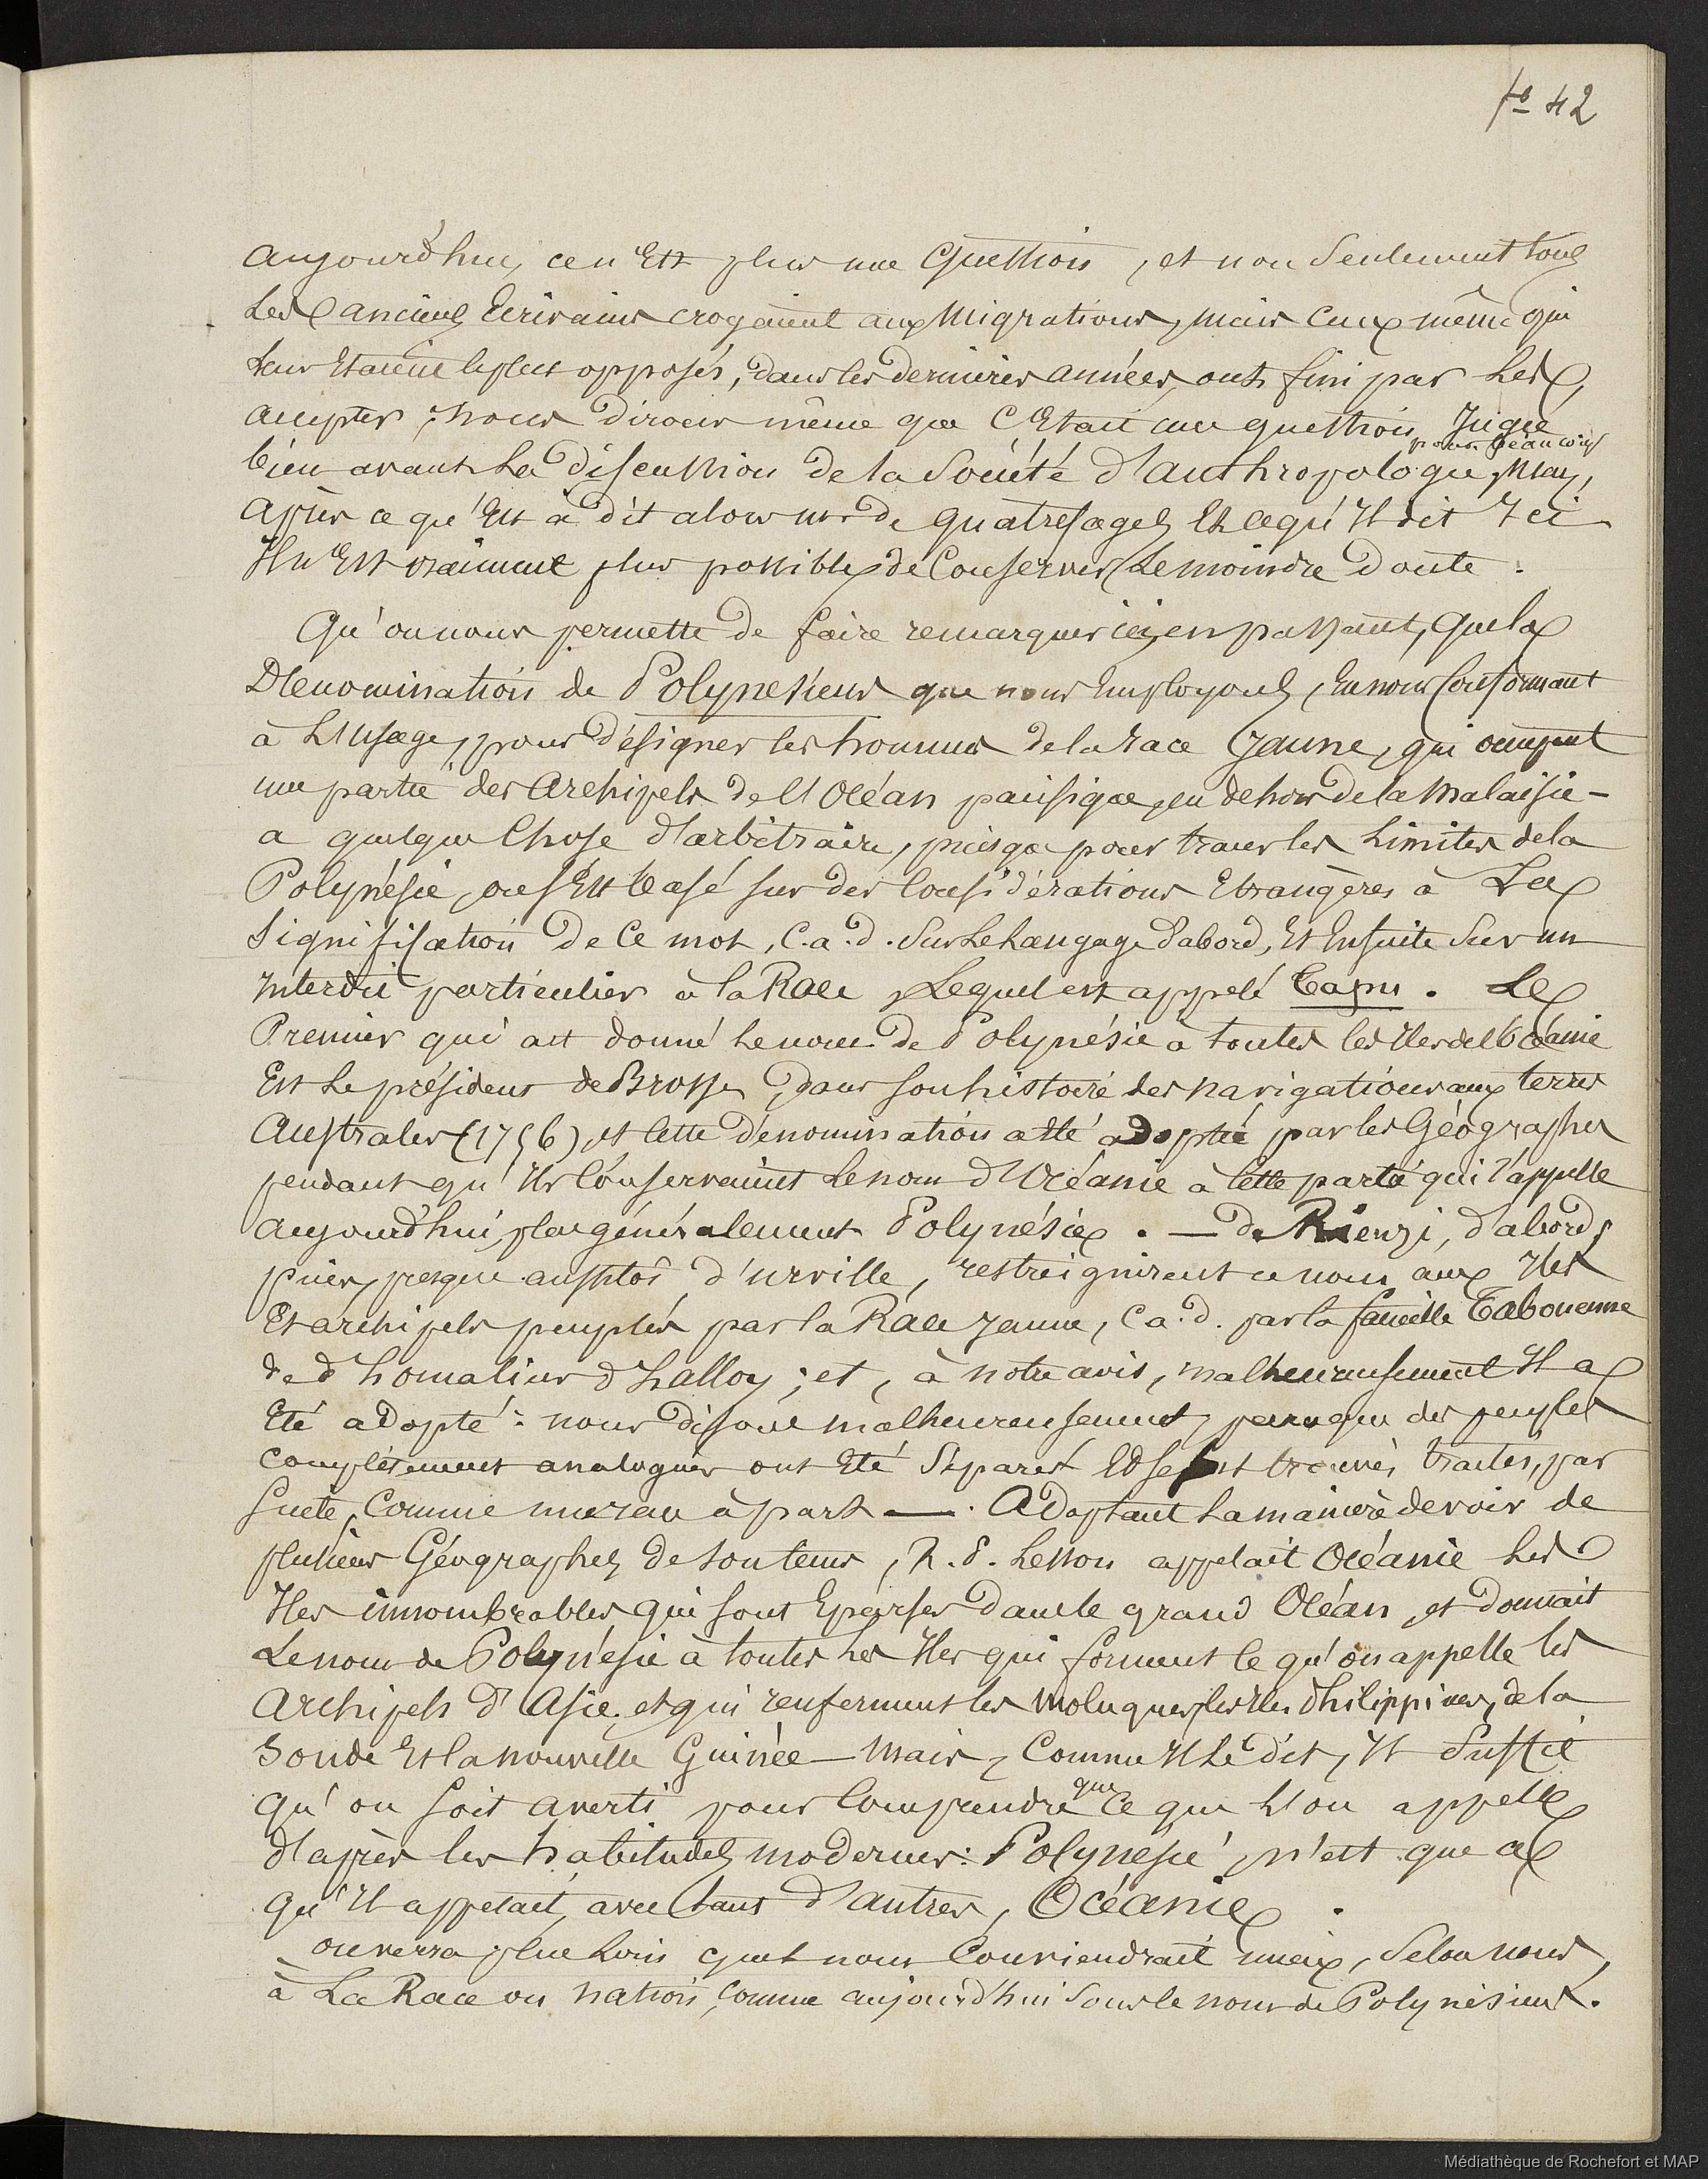 fo 42
aujourd'hui, ce n'Est plus une question, et non seulement tous
Les anciens Ecrivains croyaient aux Migrations, mais ceux même qui
leur Etaient le plus opposés, dans les dernières années, ont fini par Les
accepter ; nous dirons même que C'Etait une question Jugée
pour beaucoup
bien avant La discussion de la Société d'anthropologie, Mais,
Après ce qu'En a dit alors mr de quatrefages Et ce qu'Il dit Ici
Il n'Est vraiment plus possible de Conserver Le moindre doute.
Qu'on nous permette de faire remarquer ici, en passant, que la
Dénomination de Polynésiens que nous Employons, En nous Conformant
à L'usage, pour désigner les hommes de la race Jaune, qui occupent
une partie des Archipels de l'Océan pacifique, en dehors de la Malaisie –
a quelque Chose d'arbitraire, puisque pour tracer les Limites de la
Polynésie, on s'Est basé sur des Considérations Etrangères à La
Signification de Ce mot, C.a.d. Sur Le Langage d'abord, Et Ensuite Sur un
Interdit particulier à la Race, Lequel est appelé Tapu. Le
Premier qui ait donné Le nom de Polynésie à toutes les Iles de l'Océanie
Est Le président de Brosse, Dans son histoire des navigations aux terres
Australes (1756), et Cette dénomination a été adoptée par les Géographes
pendant qu'Ils Conservaient Le nom d'Océanie à Cette partie qui s'appelle
aujourd'hui plus généralement Polynésie. — de Rienzi, d'abord,
puis, presque aussitôt d'urville, restreignirent ce nom aux Iles
Et archipels peuplés par la Race Jaune, C.a.d. par la famille Tabouenne
de d'homalius d'halloy ; et, à notre avis, malheureusement Il a
Eté adopté : nous disons malheureusement, parceque des peuples
complètement analogues ont Eté Séparés Et se sont trouvés traités, par
suite, Comme une race à part —. Adoptant La manière de voir de
plusieurs Géographes de son temps, R. P. Lesson appelait Océanie Les
Iles innombrables qui sont Eparses dans le grand Océan, et donnait
Le nom de Polynésie à toutes Les Iles qui forment Ce qu'on appelle les
Archipels d'Asie, et qui renferment les Moluques, les Iles Philippines, de la
Sonde Et la nouvelle Guinée – Mais, Comme Il Le dit, Il Suffit
que
qu'on soit averti pour Comprendre Ce que L'on appelle
d'après les habitudes modernes : Polynésie, n'est que ce
qu'Il appelait, avec tant d'autres, Océanie.
on verra plus Loin quel nom Conviendrait mieux, Selon nous,
à La Race ou nation, Connue aujourd'hui sous le nom de Polynésiens.
Médiathèque de Rochefort et MAP